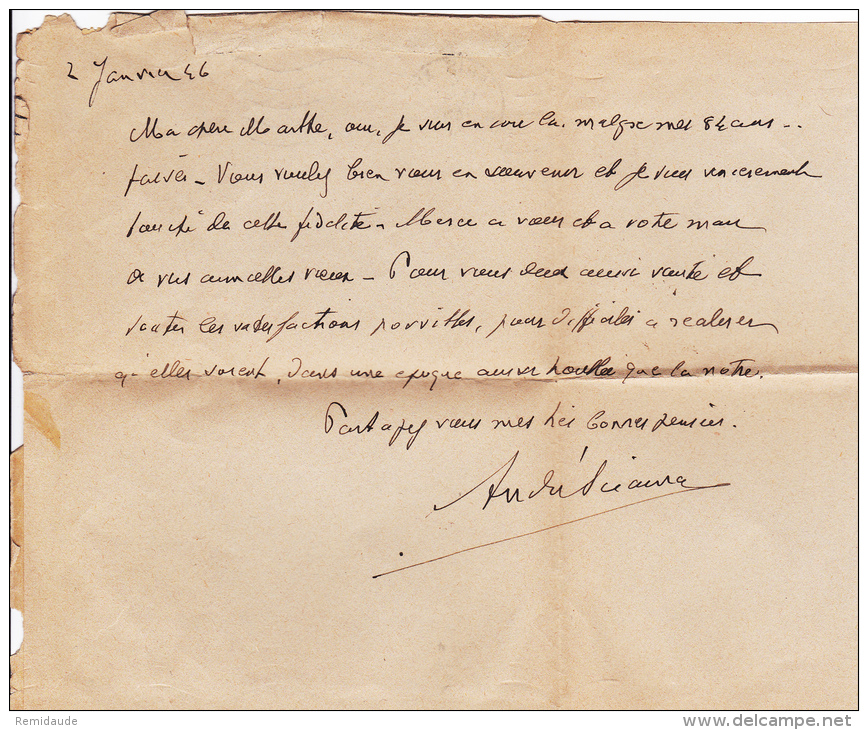 2 Janvier 46
Ma chère Marthe, oui, je suis encore là. malgré mes 84 ans..
passés - Vous voulez bien vous en souvenir et je suis sincèrement
touché de cette fidélité - Merci à vous et à votre mari
de vos annuelles vœux - Pour vous deux aussi santé et
toutes les satisfactions possibles, pour difficiles à réaliser
qu'elles soient, dans une époque aussi troublée que la nôtre.
Partagez vous mes très bonnes pensées.
André
Remidaude
www.delcampe.net